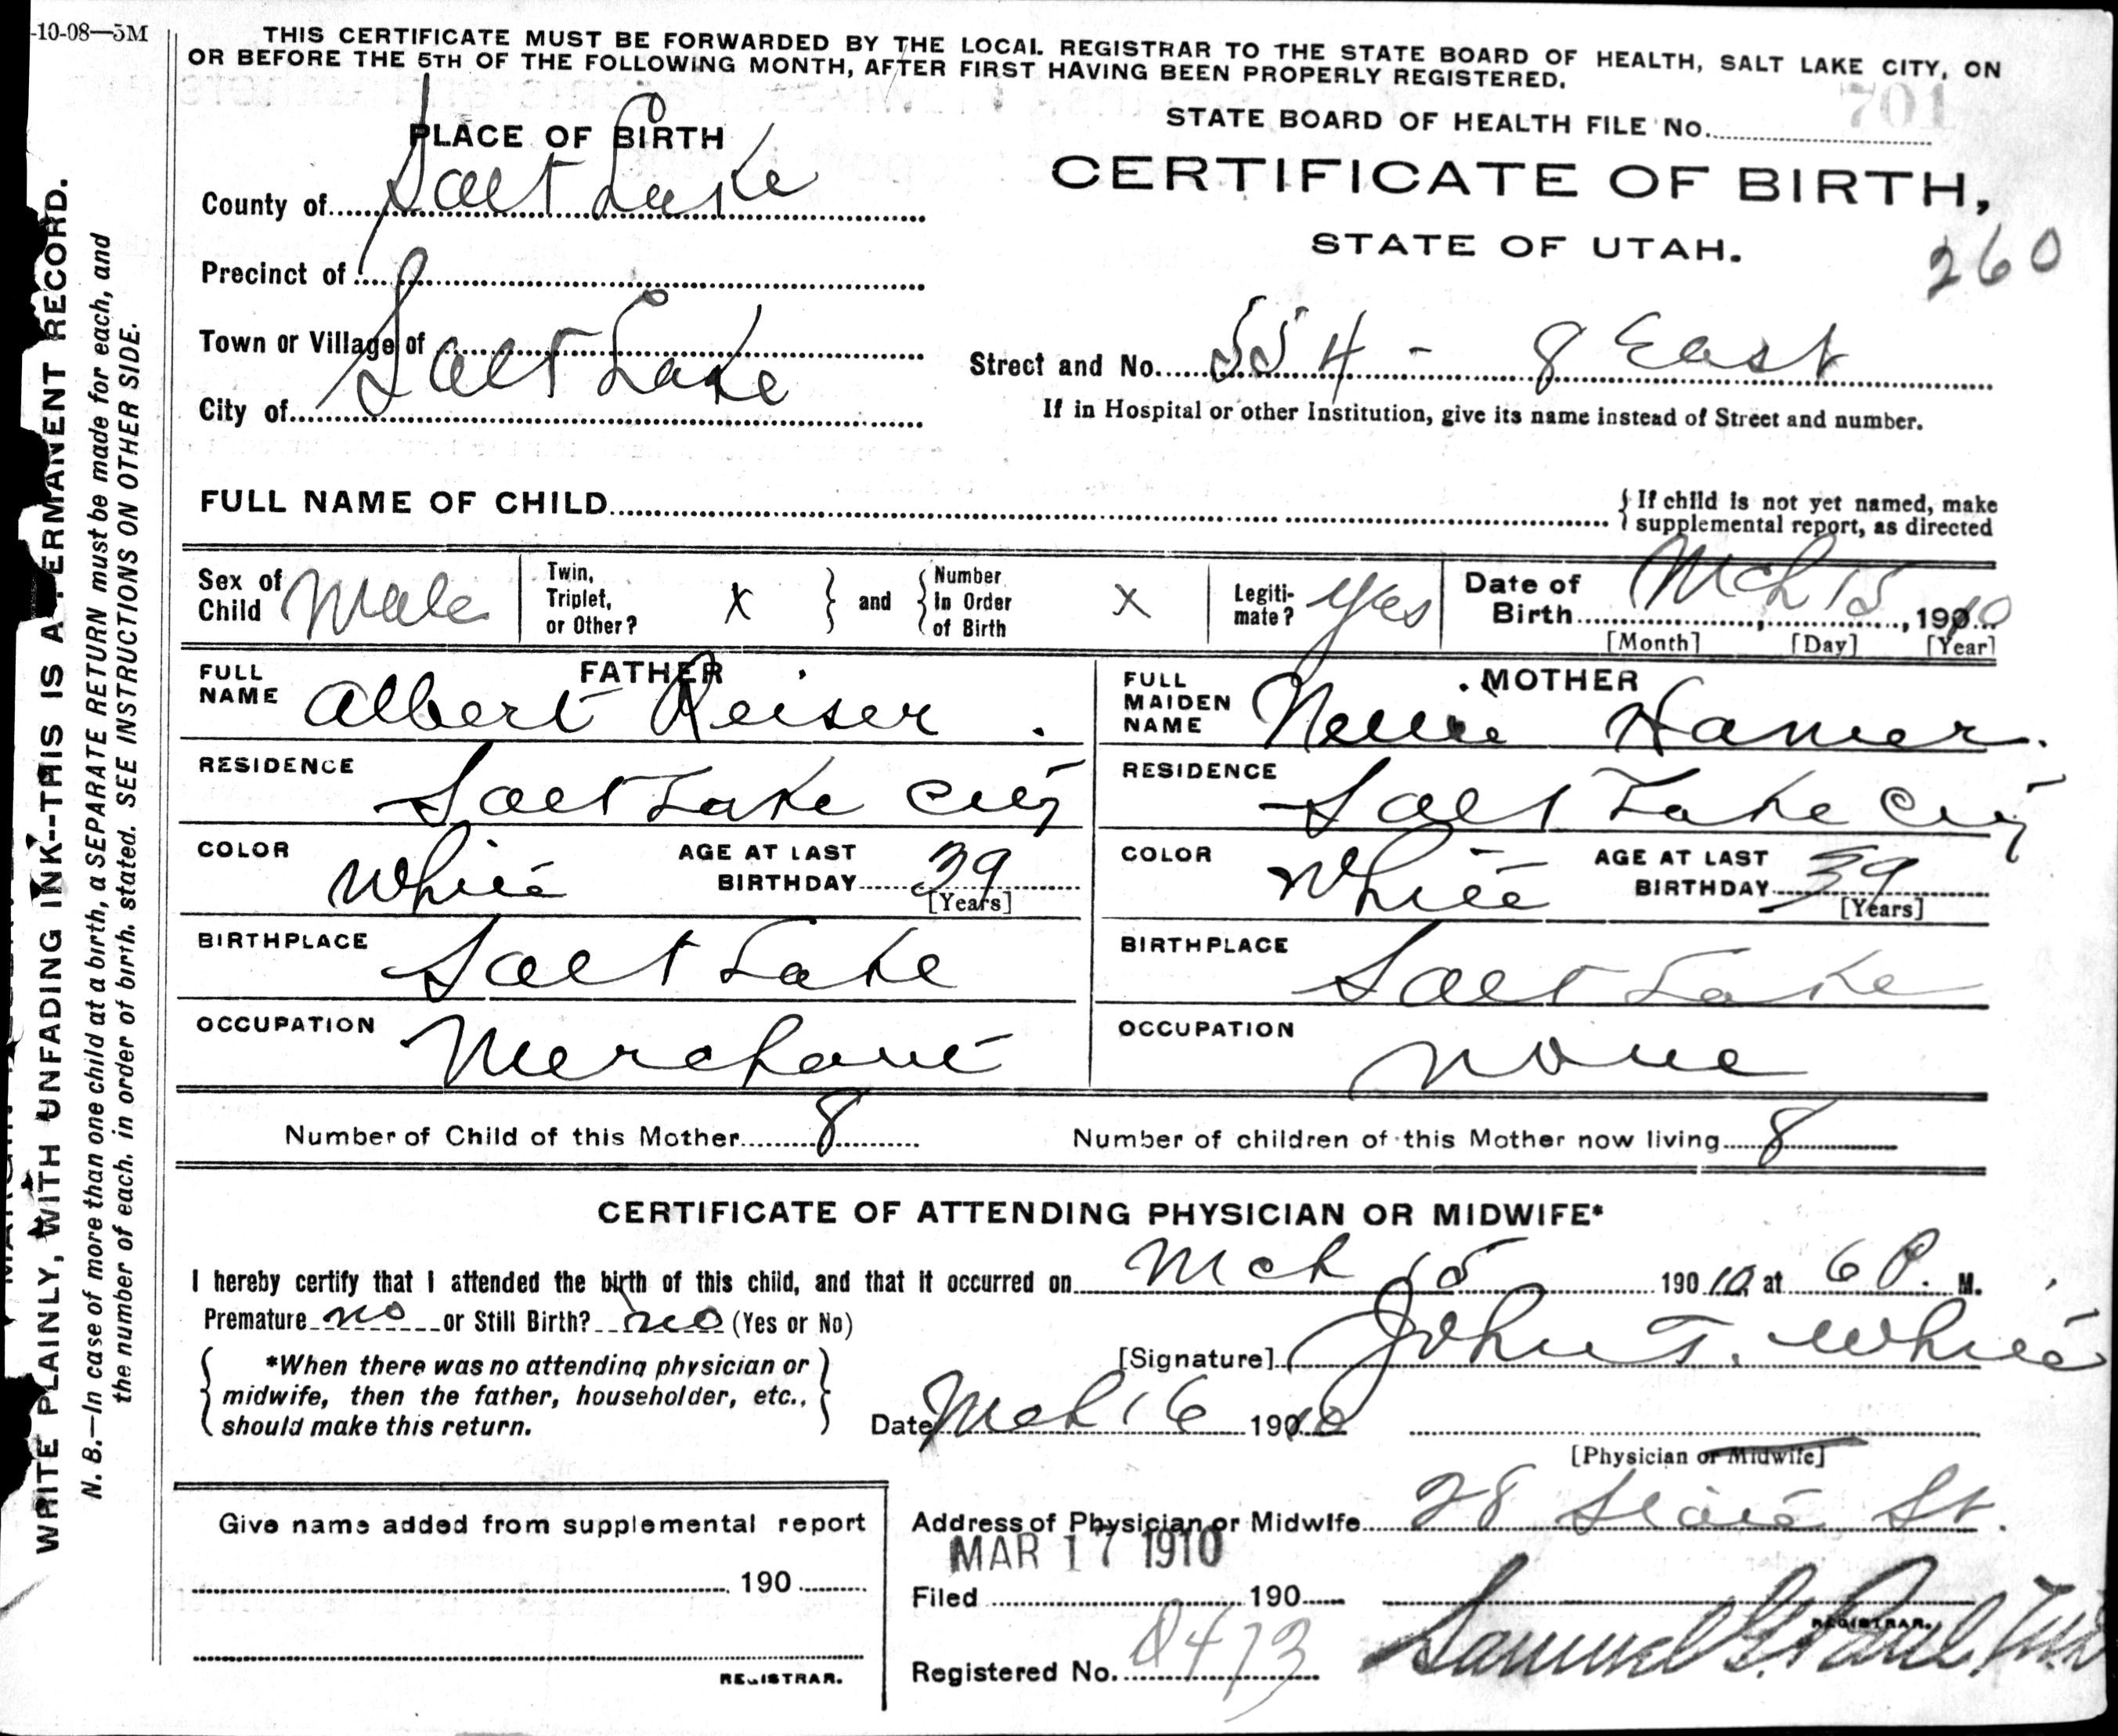 -10-08—5M
THIS CERTIFICATE MUST BE FORWARDED BY THE LOCAL REGISTRAR TO THE STATE BOARD OF HEALTH, SALT LAKE CITY, ON
OR BEFORE THE 5TH OF THE FOLLOWING MONTH, AFTER FIRST HAVING BEEN PROPERLY REGISTERED.
701
STATE BOARD OF HEALTH FILE NO.
PLACE OF BIRTH
CERTIFICATE OF BIRTH,
STATE OF UTAH.
260
County of Salt Lake
Precinct of
Town or Village of
City of Salt Lake
Street and No. 554 - 8 East
If in Hospital or other Institution, give its name instead of Street and number.
FULL NAME OF CHILD
{ If child is not yet named, make
supplemental report, as directed
Sex of Child Male
Twin, Triplet, or Other? X } and { Number in Order of Birth X
Legitimate? Yes
Date of Birth Mch 15, 1910
[Month] [Day] [Year]
FATHER
FULL NAME Albert Reiser.
RESIDENCE Salt Lake City
COLOR White AGE AT LAST BIRTHDAY 39
[Years]
BIRTHPLACE Salt Lake
OCCUPATION Merchant
MOTHER
FULL MAIDEN NAME Nellie Hamer.
RESIDENCE Salt Lake City
COLOR White AGE AT LAST BIRTHDAY 39
[Years]
BIRTHPLACE Salt Lake
OCCUPATION None
Number of Child of this Mother 8 Number of children of this Mother now living 8
CERTIFICATE OF ATTENDING PHYSICIAN OR MIDWIFE*
I hereby certify that I attended the birth of this child, and that it occurred on Mch 15 190 10 at 6 P. M.
Premature no or Still Birth? no (Yes or No)
*When there was no attending physician or
midwife, then the father, householder, etc.,
should make this return.
[Signature] John T. White
Date Mch 16 1910
[Physician or Midwife]
Address of Physician or Midwife 28 State St.
MAR 17 1910
Filed 190
Samuel G. Paul MD
REGISTRAR.
Registered No. 8473
Give name added from supplemental report
190
REGISTRAR.
WRITE PLAINLY, WITH UNFADING INK--THIS IS A PERMANENT RECORD.
N. B.—In case of more than one child at a birth, a SEPARATE RETURN must be made for each, and
the number of each, in order of birth, stated. SEE INSTRUCTIONS ON OTHER SIDE.